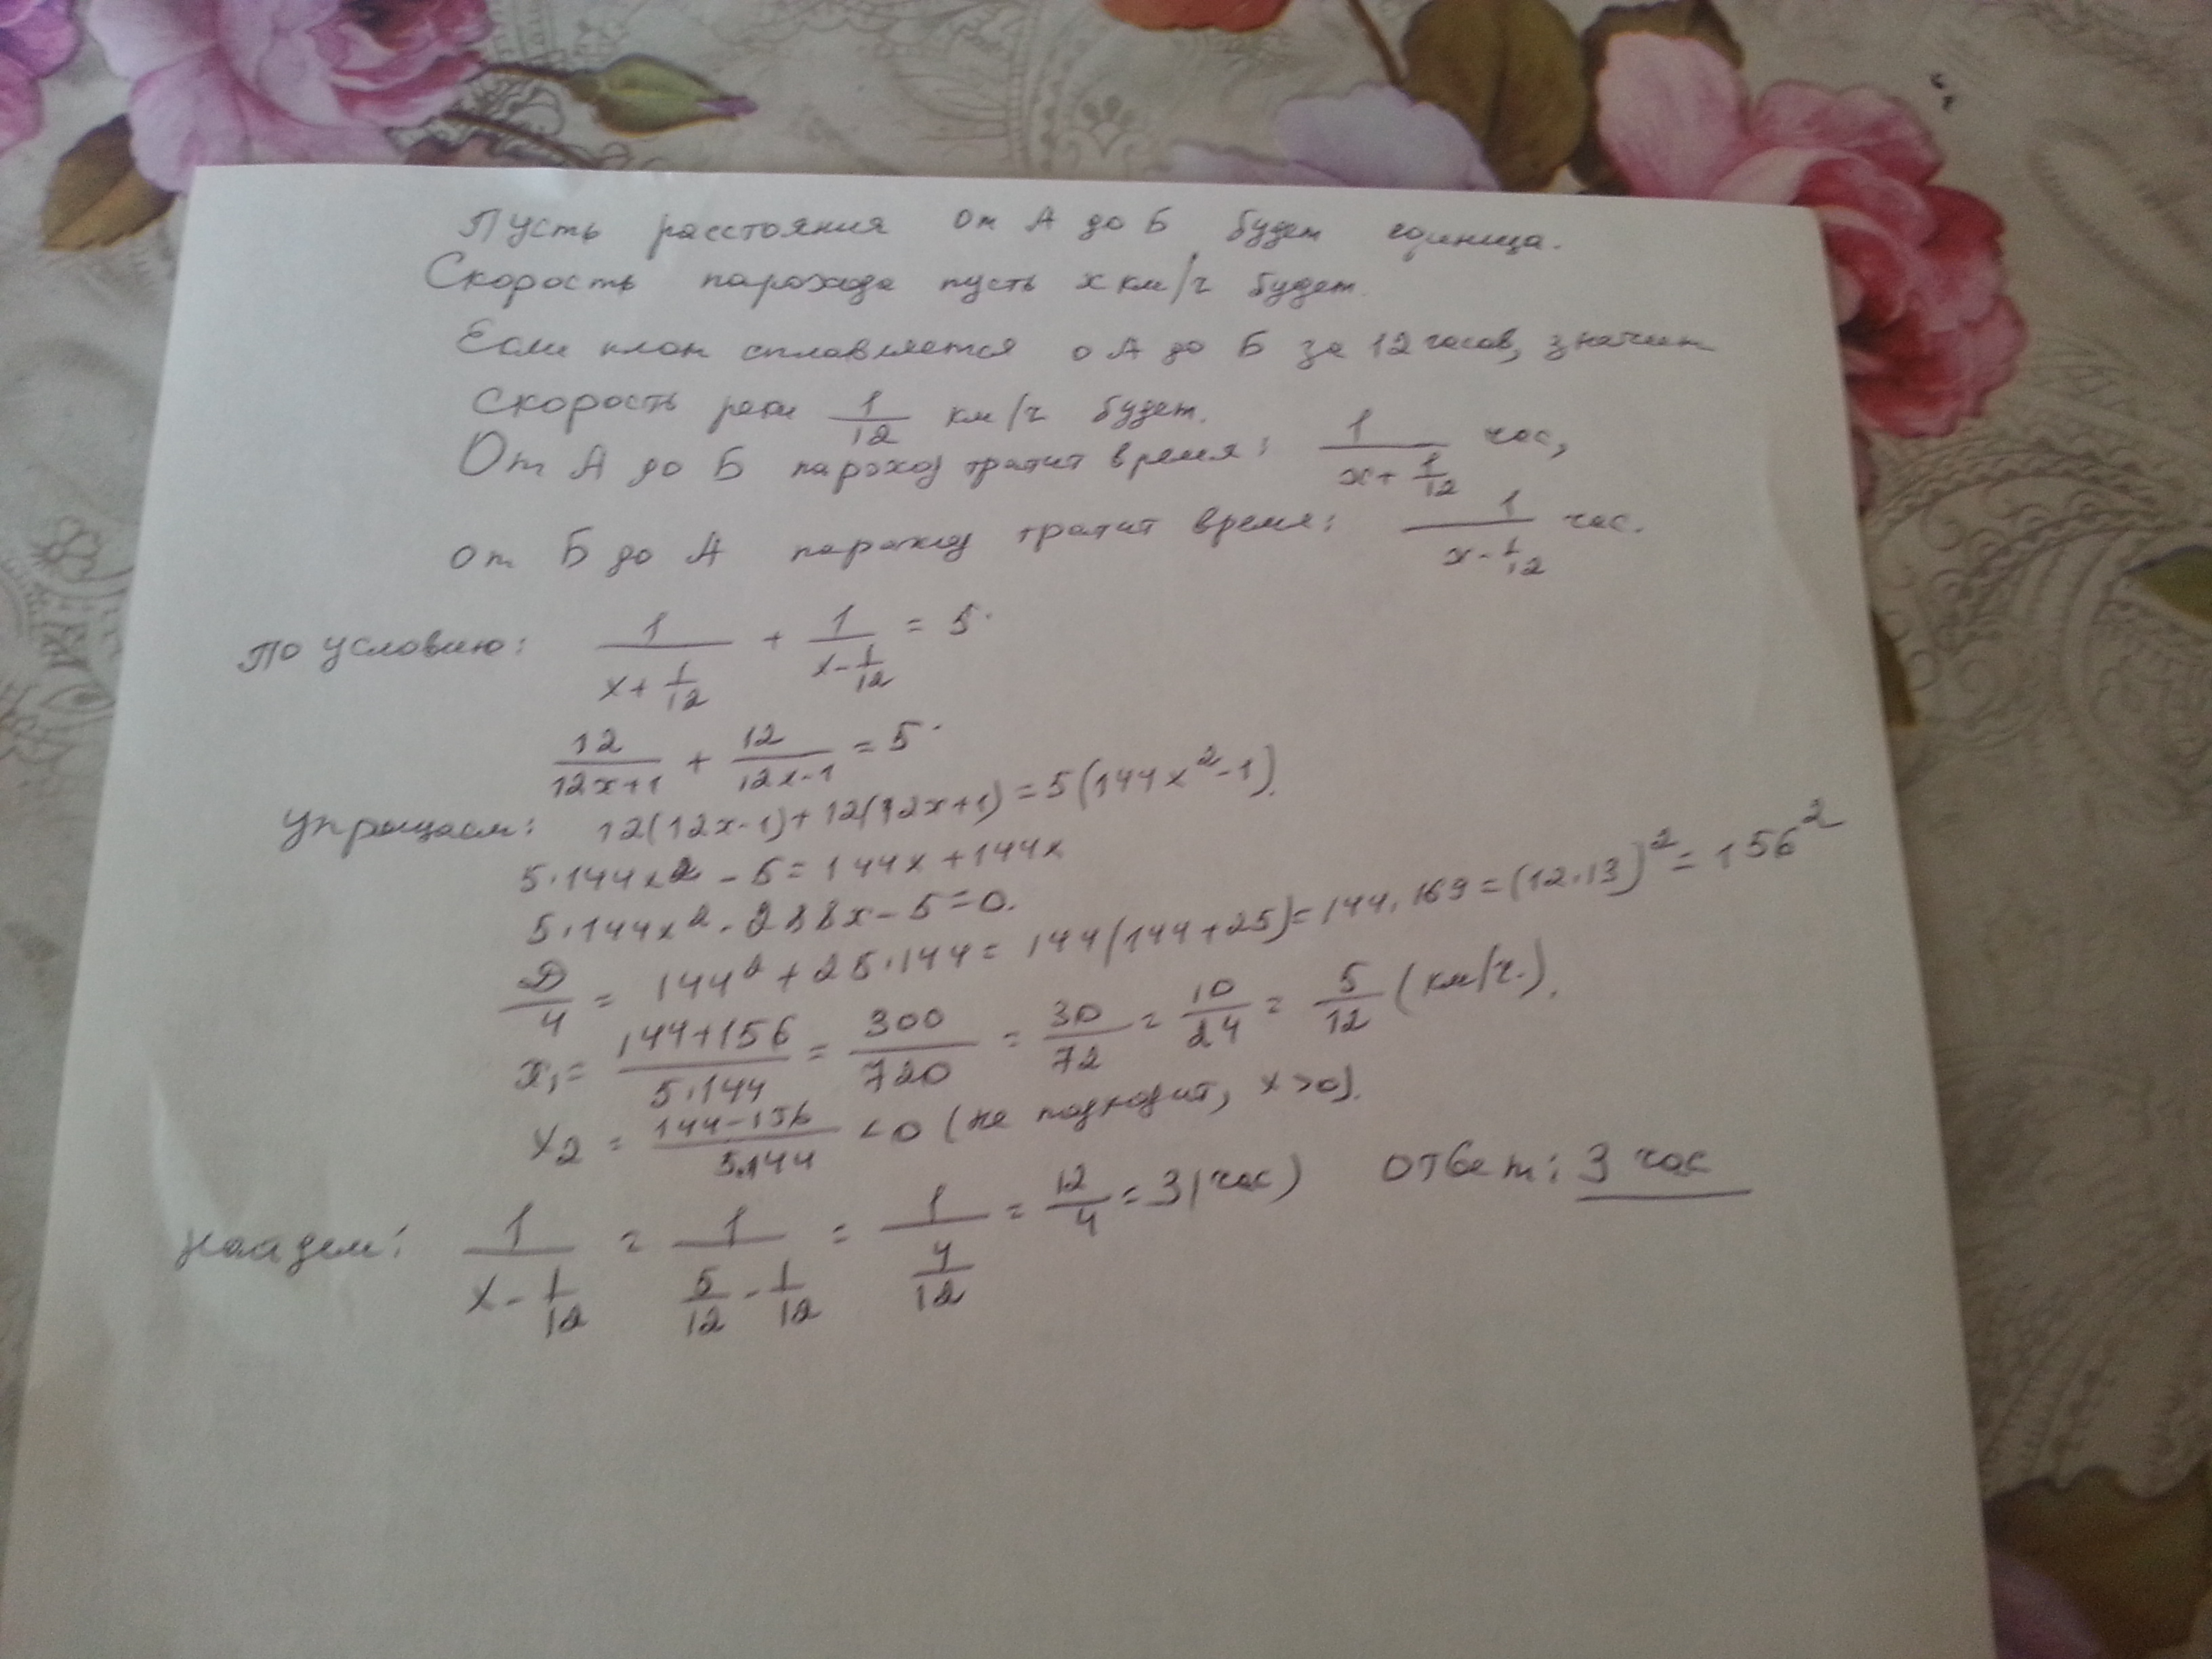 Пусть расстояния от А до Б будет единица.
Скорость парохода пусть x км/ч будет.
Если плот сплавляется о А до Б за 12 часов, значит
скорость реки 1/12 км/ч будет.
От А до Б пароход тратит время: 1/(x+1/12) час,
от Б до А пароход тратит время: 1/(x-1/12) час.
По условию: 1/(x+1/12) + 1/(x-1/12) = 5.
12/(12x+1) + 12/(12x-1) = 5.
Упрощаем: 12(12x-1)+12(12x+1)=5(144x²-1).
5·144x²-5=144x+144x
5·144x²-288x-5=0.
D/4 = 144²+25·144=144(144+25)=144·169=(12·13)²=156²
x₁= (144+156)/(5·144) = 300/720 = 30/72 = 10/24 = 5/12 (км/ч.).
x₂ = (144-156)/(5·144) <0 (не подходит, x>0).
Найдем: 1/(x-1/12) = 1/(5/12-1/12) = 1/(4/12) = 12/4 = 3(час) Ответ: 3 час